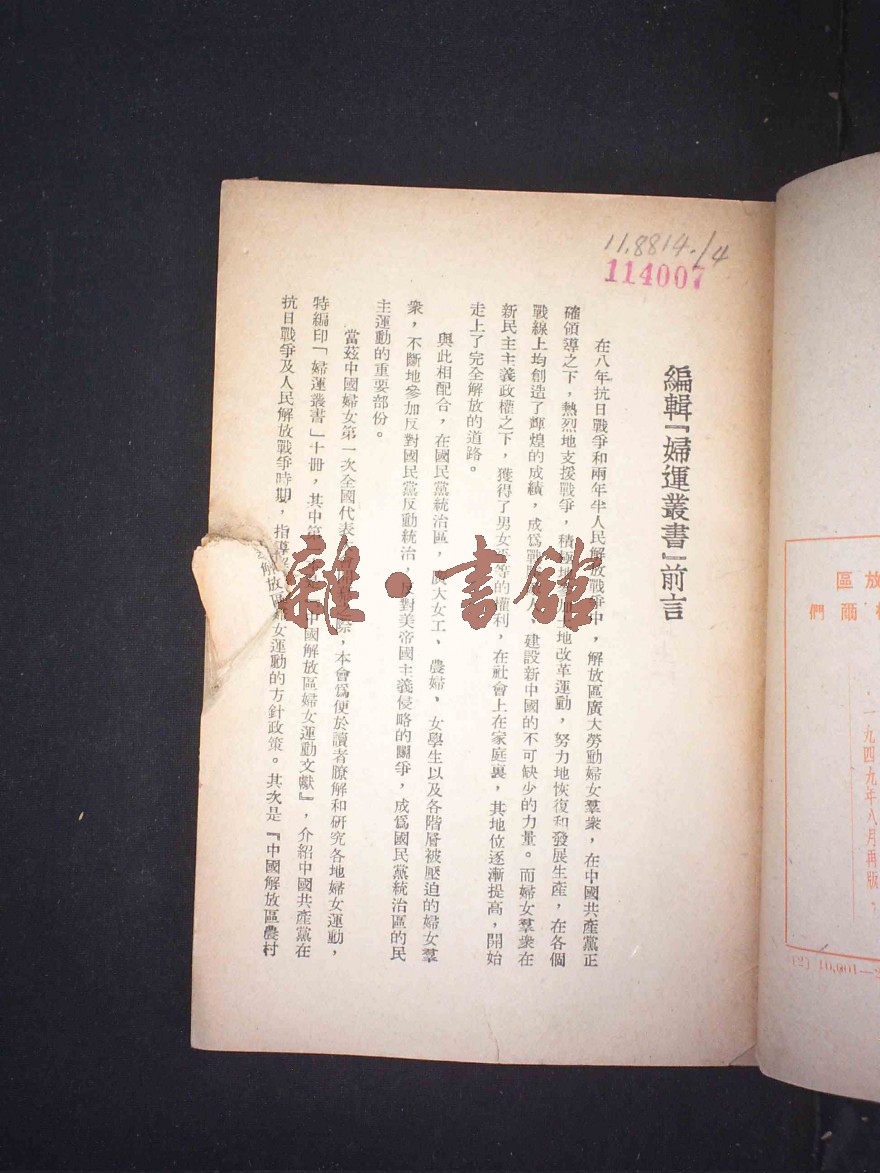 11.8814./4
114007
編輯『婦運叢書』前言
在八年抗日戰爭和兩年半人民解放戰爭中，解放區廣大勞動婦女羣衆，在中國共產黨正
確領導之下，熱烈地支援戰爭，積極地 土地改革運動，努力地恢復和發展生產，在各個
戰線上均創造了輝煌的成績，成爲戰 建設新中國的不可缺少的力量。而婦女羣衆在
新民主主義政權之下，獲得了男女平等的權利，在社會上在家庭裏，其地位逐漸提高，開始
走上了完全解放的道路。
與此相配合，在國民黨統治區，廣大女工、農婦、女學生以及各階層被壓迫的婦女羣
衆，不斷地參加反對國民黨反動統治，反對美帝國主義侵略的鬭爭，成爲國民黨統治區的民
主運動的重要部份。
當茲中國婦女第一次全國代表 際，本會爲便於讀者瞭解和研究各地婦女運動，
特編印「婦運叢書」十冊，其中第 『中國解放區婦女運動文獻』，介紹中國共產黨在
抗日戰爭及人民解放戰爭時期，指導 解放區婦女運動的方針政策。其次是『中國解放區農村
雜·書館
放
區
爾
們
一九四九年八月再版
(2) 10,001—